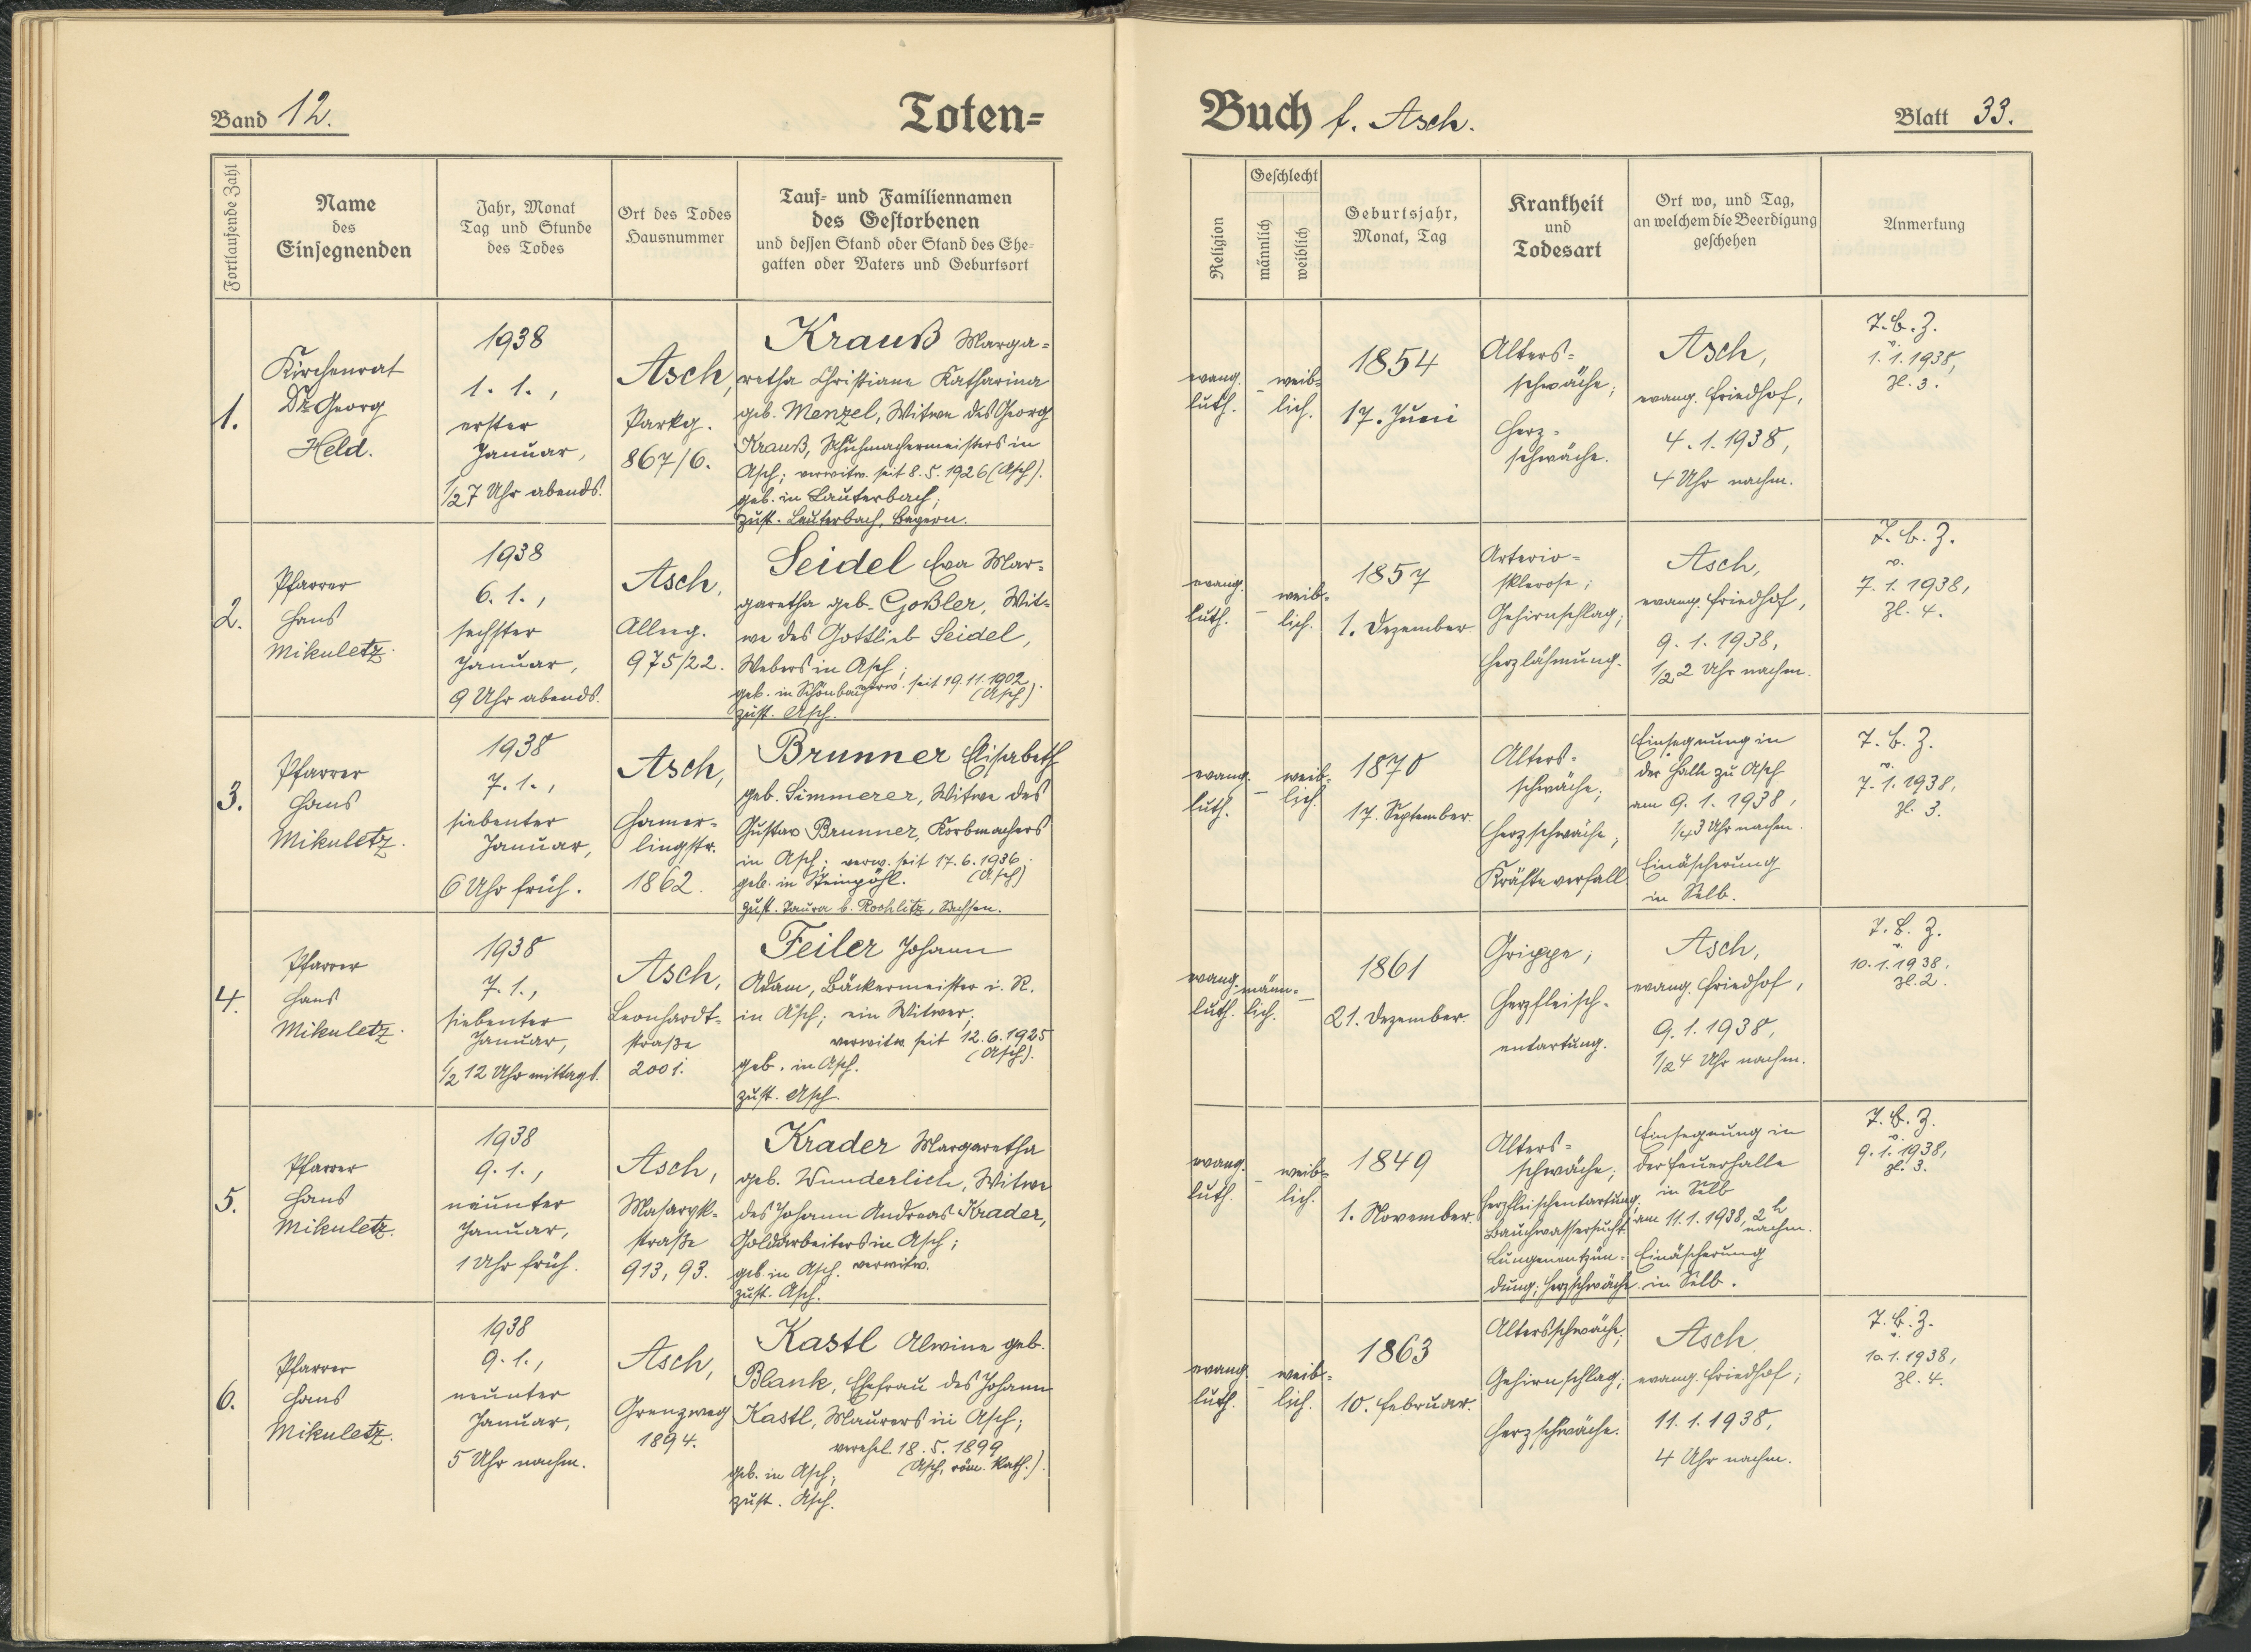 Band 12.
Toten=
Buch f. Asch.
Blatt 33.
Fortlaufende Zahl
Name
des
Einsegnenden
Jahr, Monat
Tag und Stunde
des Todes
Ort des Todes
Hausnummer
Tauf- und Familiennamen
des Gestorbenen
und dessen Stand oder Stand des Ehe-
gatten oder Vaters und Geburtsort
Religion
Geschlecht
männlich
weiblich
Geburtsjahr,
Monat, Tag
Krankheit
und
Todesart
Ort wo, und Tag,
an welchem die Beerdigung
geschehen
Anmerkung
1.
Kirchenrat
Dr. Georg
Held.
1938
1. 1.,
erster
Januar,
1/2 7 Uhr abends.
Asch,
Parkg.
867/6.
Krauß Marga=
retha Christiane Katharina
geb. Menzel, Witwe des Georg
Krauß, Schuhmachermeisters in
Asch; verwitw. seit 8. 5. 1926 (Asch).
geb. in Lauterbach;
zust. Lauterbach, Bayern.
evang.
luth.
–
weib=
lich.
1854
17. Juni
Alters=
schwäche;
Herz=
schwäche.
Asch,
evang. Friedhof,
4. 1. 1938,
4 Uhr nachm.
T. B. Z.
v.
1. 1. 1938,
Zl. 3.
2.
Pfarrer
Hans
Mikuletz.
1938
6. 1.,
sechster
Januar,
9 Uhr abends.
Asch,
Alleeg.
975/22.
Seidel Eva Mar=
garetha geb. Goßler, Wit=
we des Gottlieb Seidel,
Webers in Asch;
verw. seit 19. 11. 1902
geb. in Schönbach (Asch).
zust. Asch.
evang.
luth.
–
weib=
lich.
1857
1. Dezember.
Arterio=
sklerose;
Gehirnschlag;
Herzlähmung.
Asch,
evang. Friedhof,
9. 1. 1938,
1/2 2 Uhr nachm.
T. B. Z.
v.
7. 1. 1938,
Zl. 4.
3.
Pfarrer
Hans
Mikuletz.
1938
7. 1.,
siebenter
Januar,
6 Uhr früh.
Asch,
Hamer=
lingstr.
1862.
Brunner Elisabeth
geb. Simmerer, Witwe des
Gustav Brunner, Korbmachers
in Asch; verw. seit 17. 6. 1936.
geb. in Steinpöhl. (Asch)
zust. Taura b. Rochlitz, Sachsen.
evang.
luth.
–
weib=
lich.
1870
17. September.
Alters=
schwäche;
Herzschwäche;
Kräfteverfall.
Einsegnung in
der Halle zu Asch
am 9. 1. 1938,
1/4 3 Uhr nachm.
Einäscherung
in Selb.
T. B. Z.
v.
7. 1. 1938,
Zl. 3.
4.
Pfarrer
Hans
Mikuletz.
1938
7. 1.,
siebenter
Januar,
1/2 12 Uhr mittags.
Asch,
Leonhardt=
straße
2001.
Feiler Johann
Adam, Bäckermeister i. R.
in Asch; ein Witwer;
verwitw seit 12. 6. 1925
(Asch).
geb. in Asch.
zust. Asch.
evang.
luth.
männ=
lich.
–
1861
21. Dezember.
Grippe;
Herzfleisch=
entartung.
Asch,
evang. Friedhof,
9. 1. 1938,
1/2 4 Uhr nachm.
T. B. Z.
v.
10. 1. 1938.
Zl. 2.
5.
Pfarrer
Hans
Mikuletz.
1938
9. 1.,
neunter
Januar,
1 Uhr früh.
Asch,
Masaryk=
straße
913, 93.
Krader Margaretha
geb. Wunderlich, Witwe
des Johann Andreas Krader,
Goldarbeiters in Asch;
geb. in Asch. verwitw.
zust. Asch.
evang.
luth.
–
weib=
lich.
1849
1. November.
Alters=
schwäche;
Herzfleischentartung;
Bauchwassersucht;
Lungenentzün=
dung; Herzschwäche.
Einsegnung in
der Feuerhalle
in Selb
am 11. 1. 1938, 2 h
nachm.
Einäscherung
in Selb.
T. B. Z.
v.
9. 1. 1938,
Zl. 3.
6.
Pfarrer
Hans
Mikuletz.
1938
9. 1.,
neunter
Januar,
5 Uhr nachm.
Asch,
Grenzweg
1894.
Kastl Alwine geb.
Blank, Ehefrau des Johann
Kastl, Maurers in Asch;
verehel. 18. 5. 1899
(Asch, röm. kath.).
geb. in Asch;
zust. Asch.
evang.
luth.
–
weib=
lich.
1863
10. Februar.
Altersschwäche;
Gehirnschlag;
Herzschwäche.
Asch
evang. Friedhof;
11. 1. 1938,
4 Uhr nachm.
T. B. Z.
v.
10. 1. 1938,
Zl. 4.